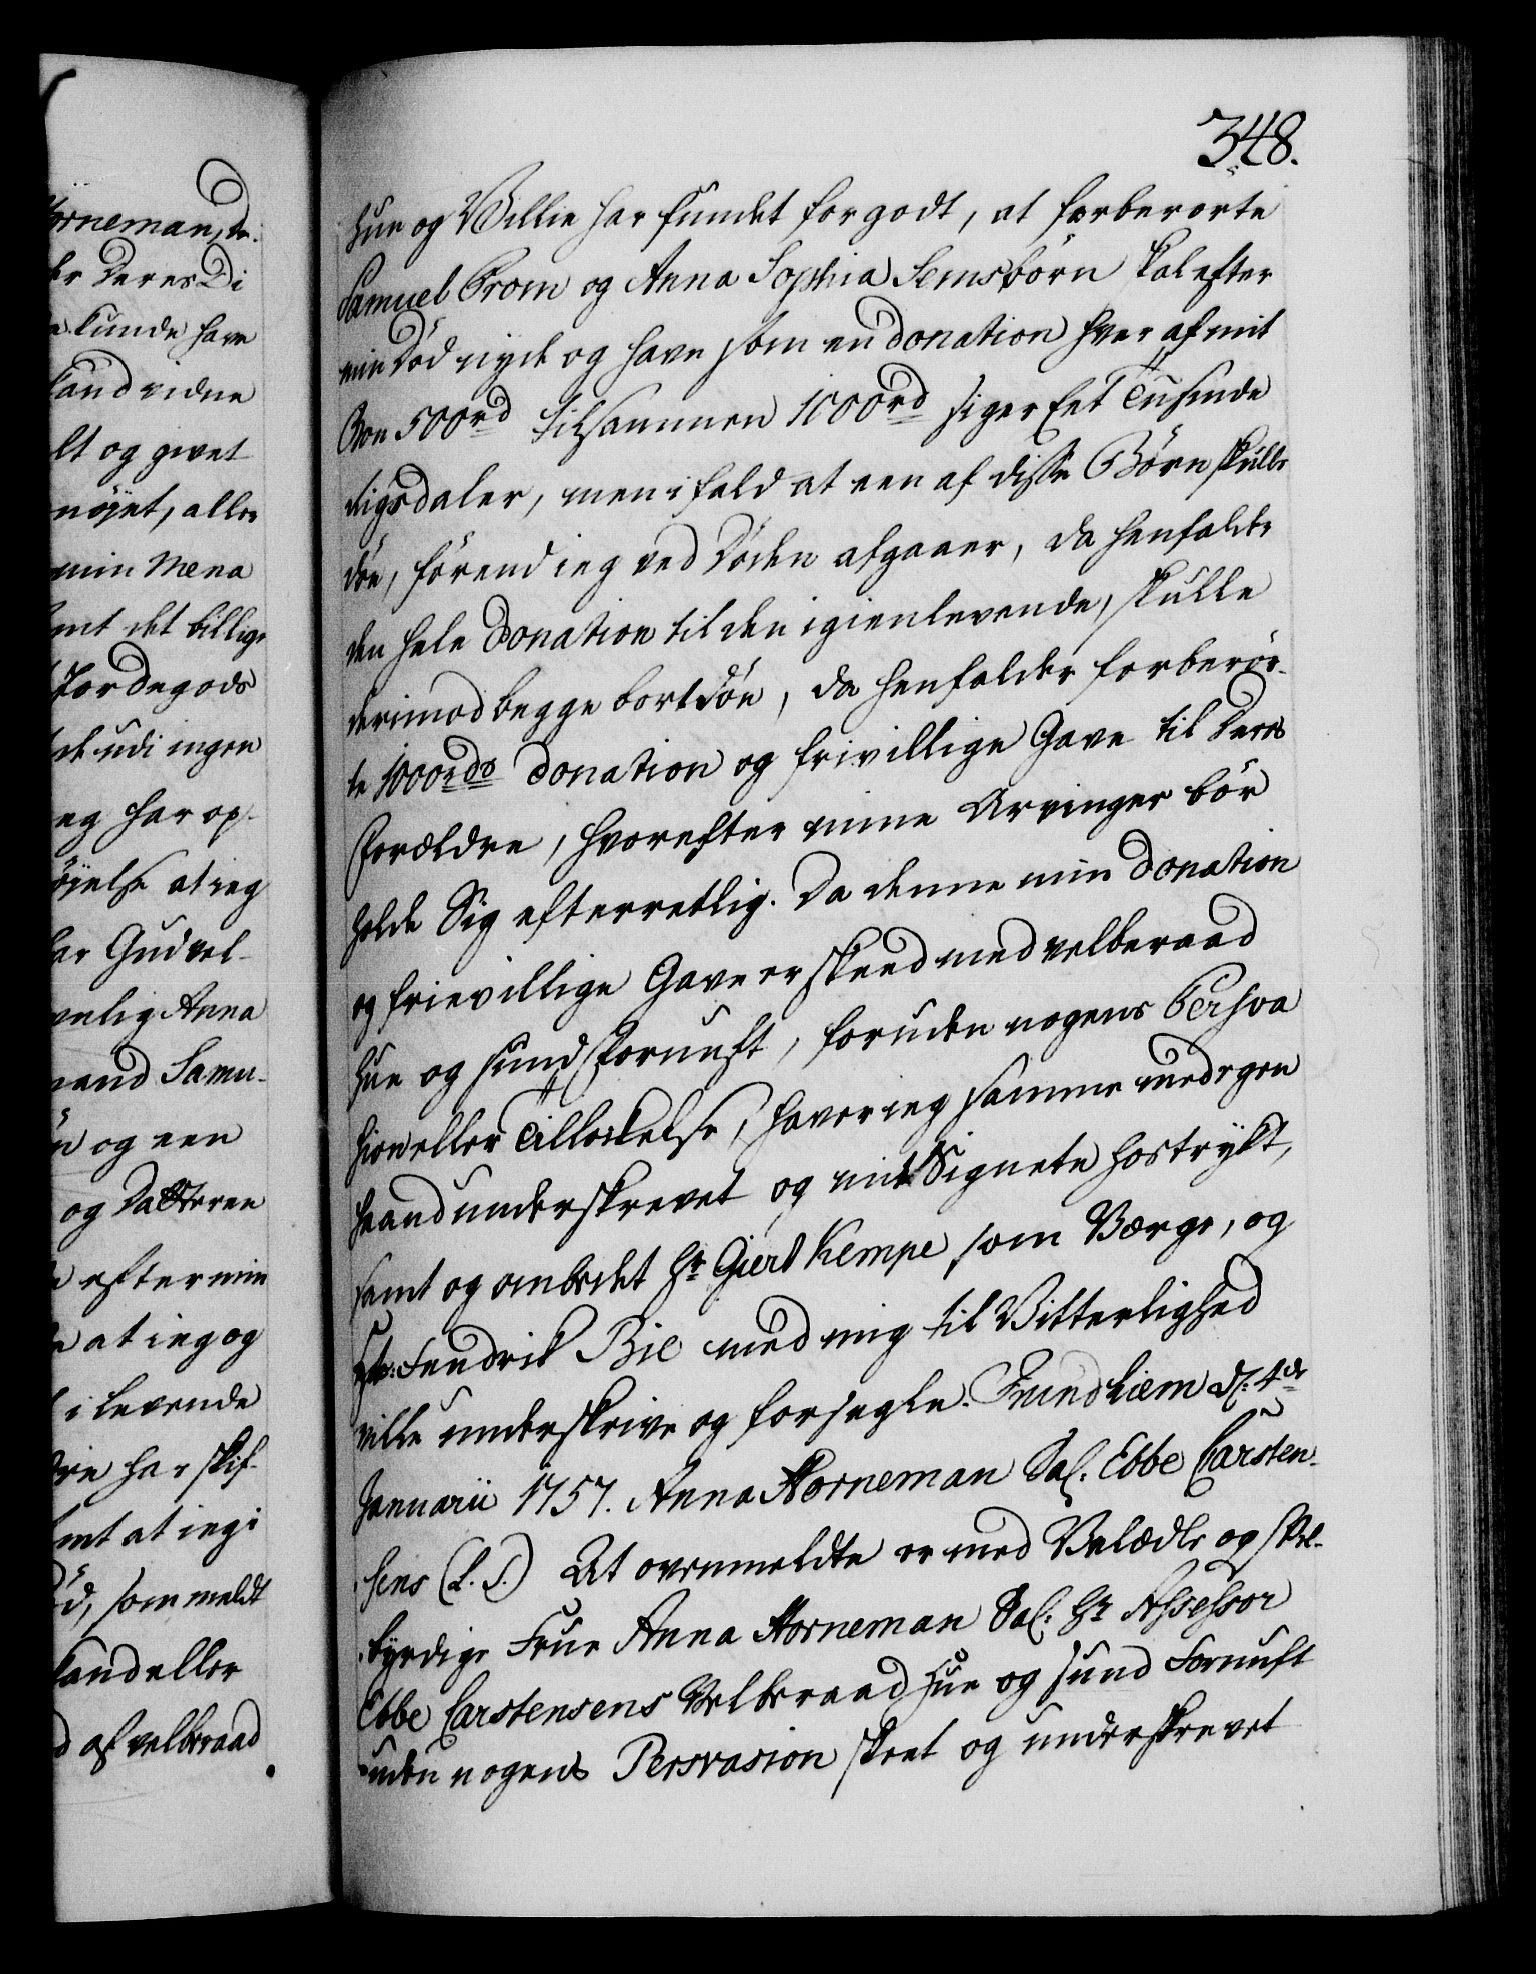 348.
Hue og Villie har fundet for godt, at forberørte
Samuel Crom og Anna Sophia Semsbörn skal efter
min Död nyde og have som en donation hver af mit
Boe 500rd tilsammen 1000rd siger Eet Tusinde
Rigsdaler, men ifald at een af disse Börn skulle
döe, förend ieg ved Döden afgaaer, da henfalder
den hele Donation til den igienlevende, skulle
derimod begge bortdöe, da henfalder forberör-
te 1000rds donation og frivillige Gave til deres
Forældre, hvorefter mine Arvinger bör
holde Sig efterretlig. Da denne min Donation
og frievillige Gave er skeed med velberaad
Hue og sund Fornuft, foruden nogens Persva
sion eller Tillokkelse, haver ieg samme med egen
haand underskrevet og mit Signete hostrykt,
samt og ombedet Hr. Giert Kempe som Værge, og
Hr: Fendrik Bie med mig til Vitterlighed
ville underskrive og forsegle. Trundhiem d: 4de
Januarii 1757. Anna Horneman Sal. Ebbe Carsten-
sens (L. S.) At ovenmeldte er med Velædle og Vel-
byrdige Frue Anna Horneman Sal: Hr. Assessor
Ebbe Carstensens Velberaad Hue og sund Fornuft
uden nogens Persvasion skeet og underskrevet
Horneman, de
der deres Di
kunde have
kand vidne
lt og givet
nöyet, aller
min Mena
mt det billige
Jordegods
de udi ingen
eg har op-
öyelse at ieg
har Gud vel-
venlig Anna
mand Samu-
n og een
og Datteren
efter min
at ieg og
i levende
har skif-
mt at ieg i
öd, som meldt
kand eller
d af velberaad